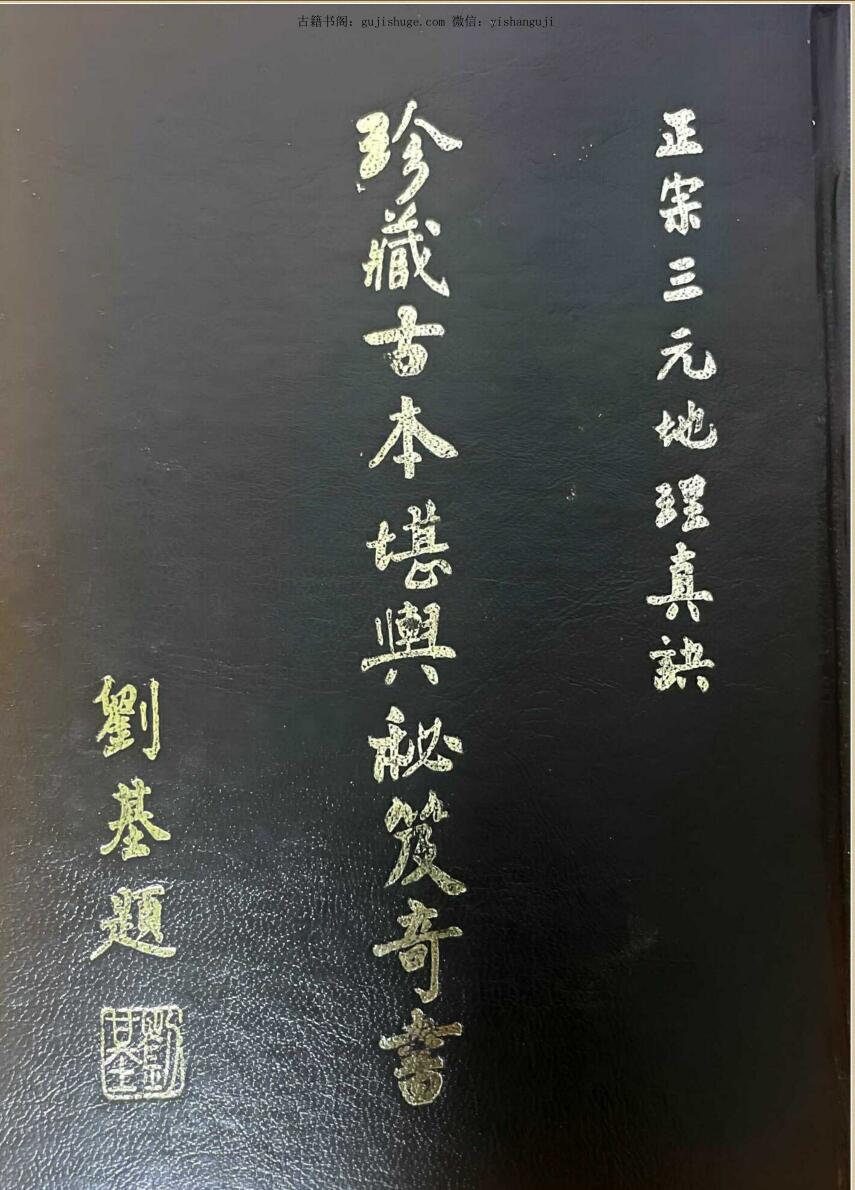 古籍书阁：gujishuge.com 微信：yishanguji
正宗三元地理真訣
珍藏古本堪輿秘笈奇書
劉基題
劉基